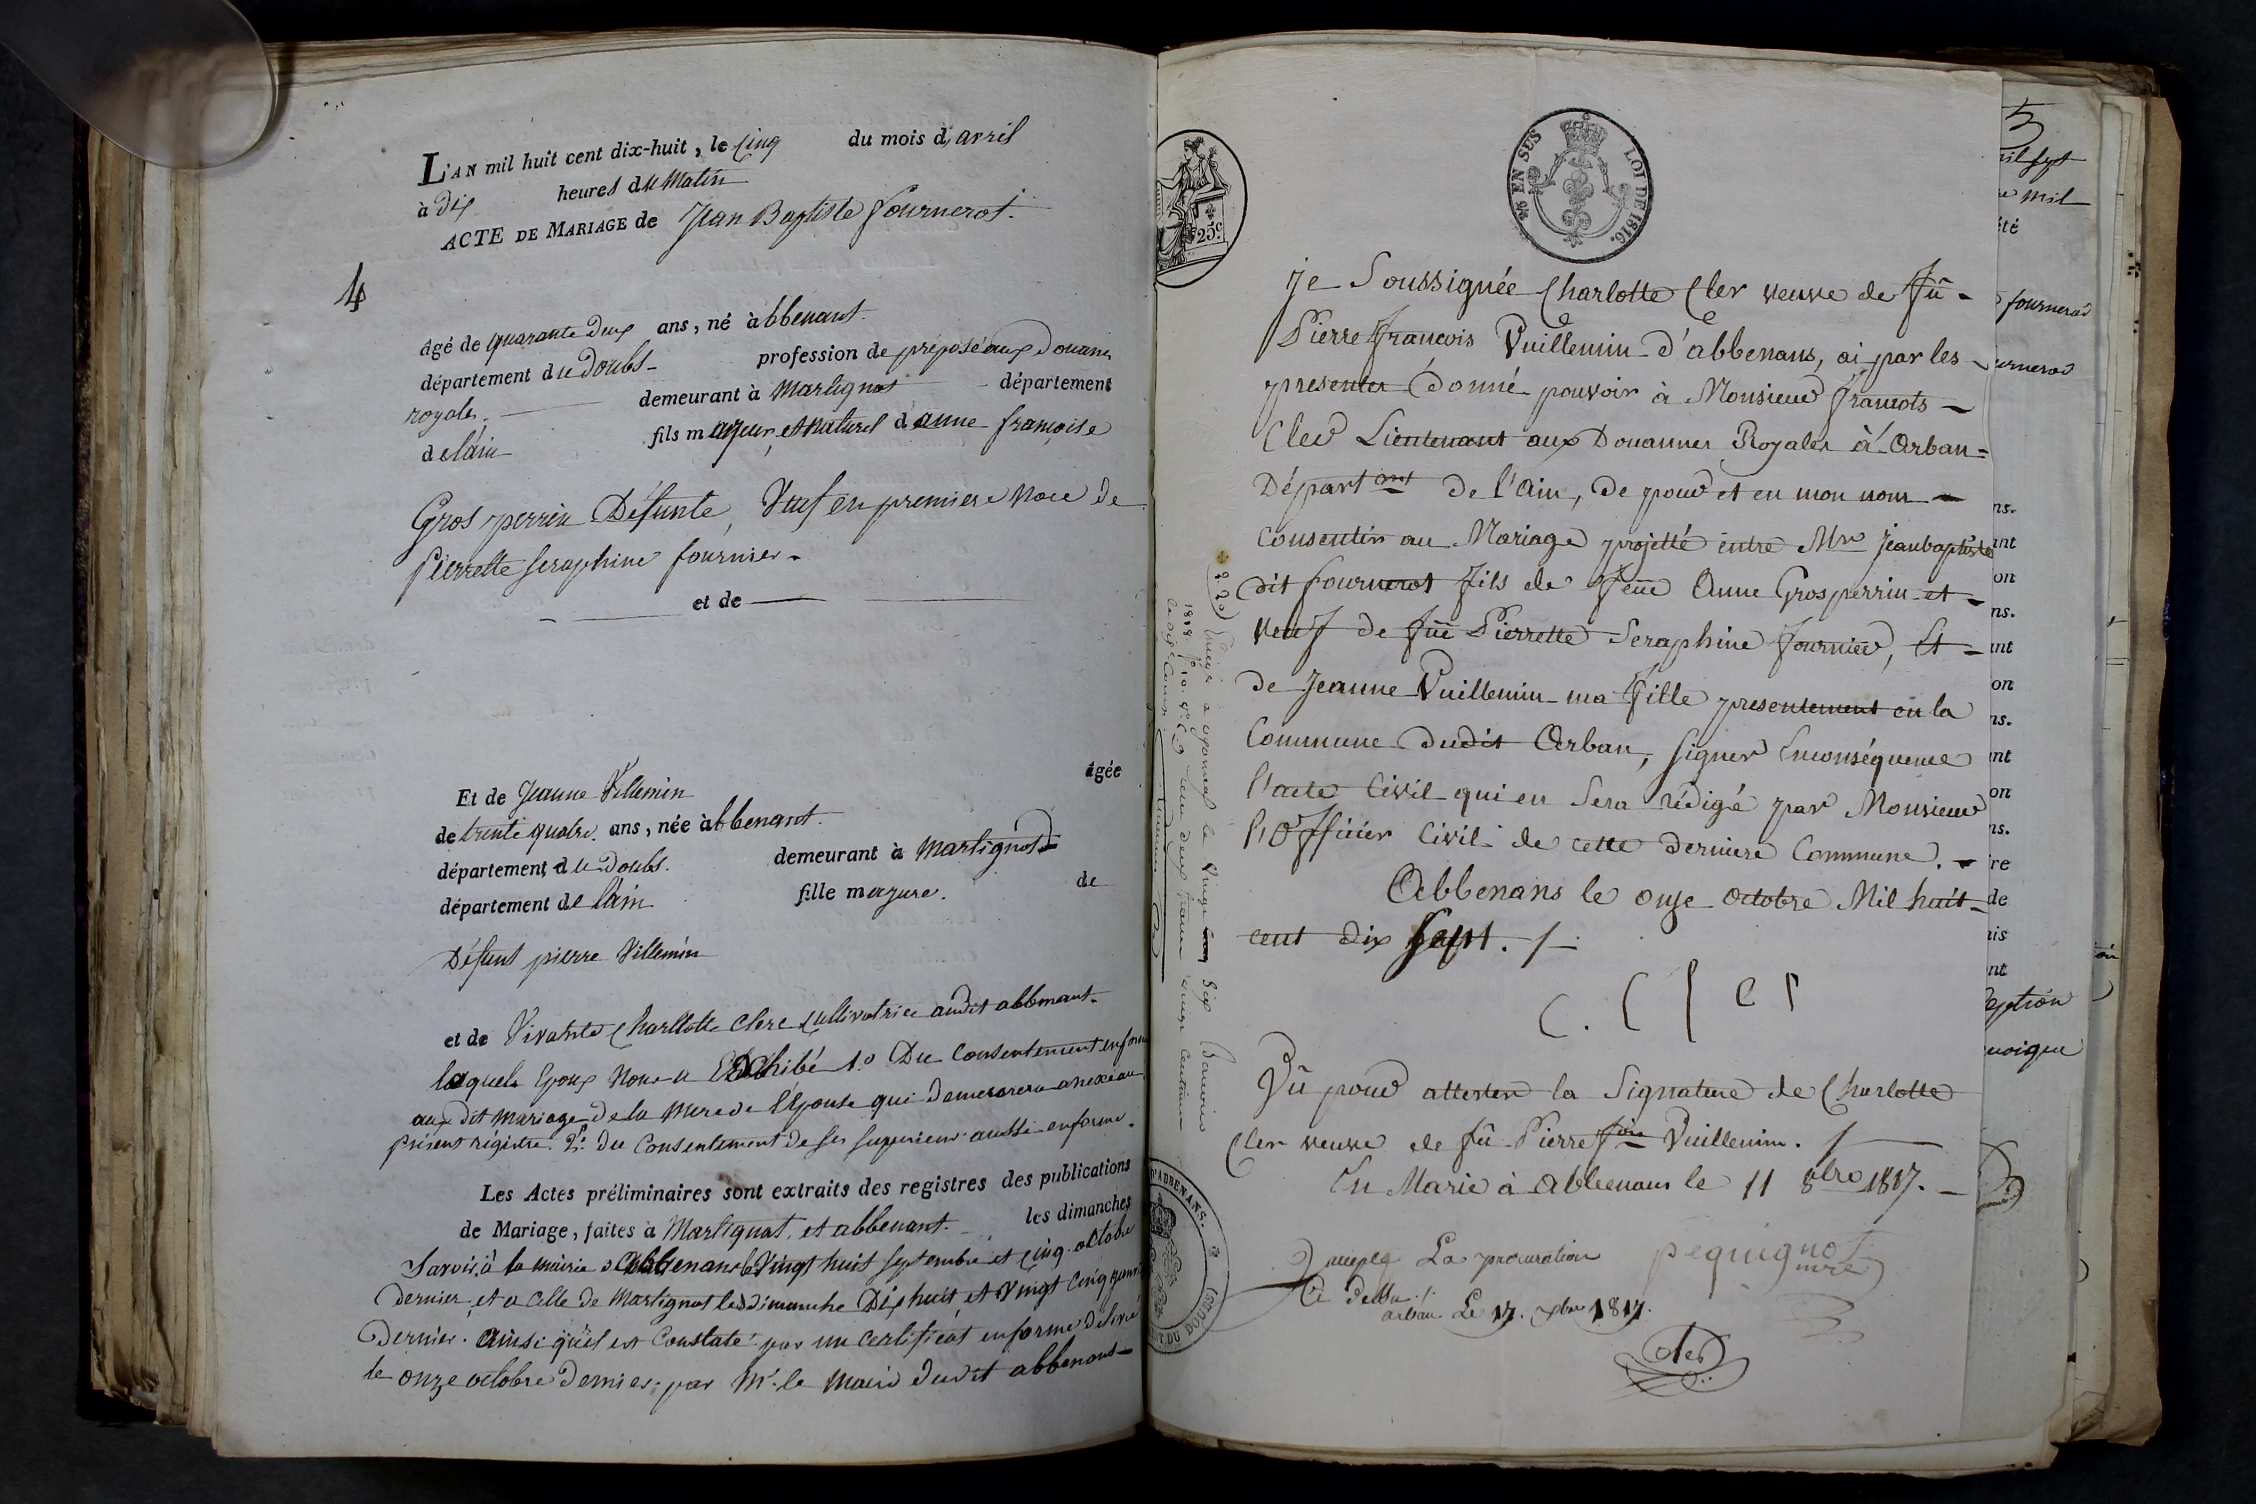 L'AN mil huit cent dix-huit, le Cinq du mois d'avril
à Dix heures du Matin
ACTE DE MARIAGE de Jean Baptiste fournerot.
4
agé de quarante deux ans, né à bbenant
département du Doubs profession de préposé aux Douanes
royales demeurant à Martignat département
de l'ain fils majeur et naturel d'anne françoise
Gros perrin Défunte, Veuf en premiere Noce de
Pierrette seraphine fournier
et de
Et de Jeanne Villemin agée
de trente quatre ans, née à bbenant.
département du Doubs. demeurant à Martignat
département de l'ain fille majeure. de
Défunt pierre Villemin
et de Vivante Charllotte Clerc Cultivatrice audit abbenant.
laquels Epoux Nous a Exhibé 1.º Du Consentement enforme
aux dit mariage de la mere de l'Epouse qui demeurera anexé au
présent régistre. 2.º Du Consentement de ses superieur aussi enforme.
Les Actes préliminaires sont extraits des registres des publications
de Mariage, faites à Martignat, et abbenant. les dimanches
Savoir, à la mairie d'abbenans le Vingt huit septembre et Cinq octobre
Dernier, et a celle de Martignat les dimanche Dix huit et Vingt Cinq
Dernier. ainsi qu'il est Constaté par un certificat enforme délivré
le onze octobre Dernier. par Mr. le Maire dudit abbenans
25c.
EN SUS LOI DE 1816.
je Soussignée Charlotte Cler veuve de fû
Pierre francois Vuillemin d'abbenans, ai par les
presentes Donné pouvoir à Monsieur francois
Cler Lieutenant aux Douannes Royales à Arban
Départ.ent De l'Ain, De pour et en mon nom
Consentir au Mariage projetté entre Mr Jeanbaptiste
dit fournerot fils de feue Anne Grosperrin et
veuf de fue Pierrette Seraphine fournier, Et
de Jeanne Vuillemin ma fille presentement en la
Commune dudit Arban, signer Enconséquence
l'acte Civil qui en Sera rédigé par Monsieur
l'Officier Civil de cette derniere Commune.
Abbenans le onze octobre Mil huit
cent dix Sept.
C. Cler
Vû pour attester la Signature de Charlotte
Cler veuve de fû Pierre f.ois Vuillemin.
En Marie à Abbenans le 11 8bre 1817.
pequignot
mre
La procuration
Ci dessu
arban Le 17. 1817.
Cler
D'ABBENANS.
DU DOUBS
fournerot
mil sept
mil
été